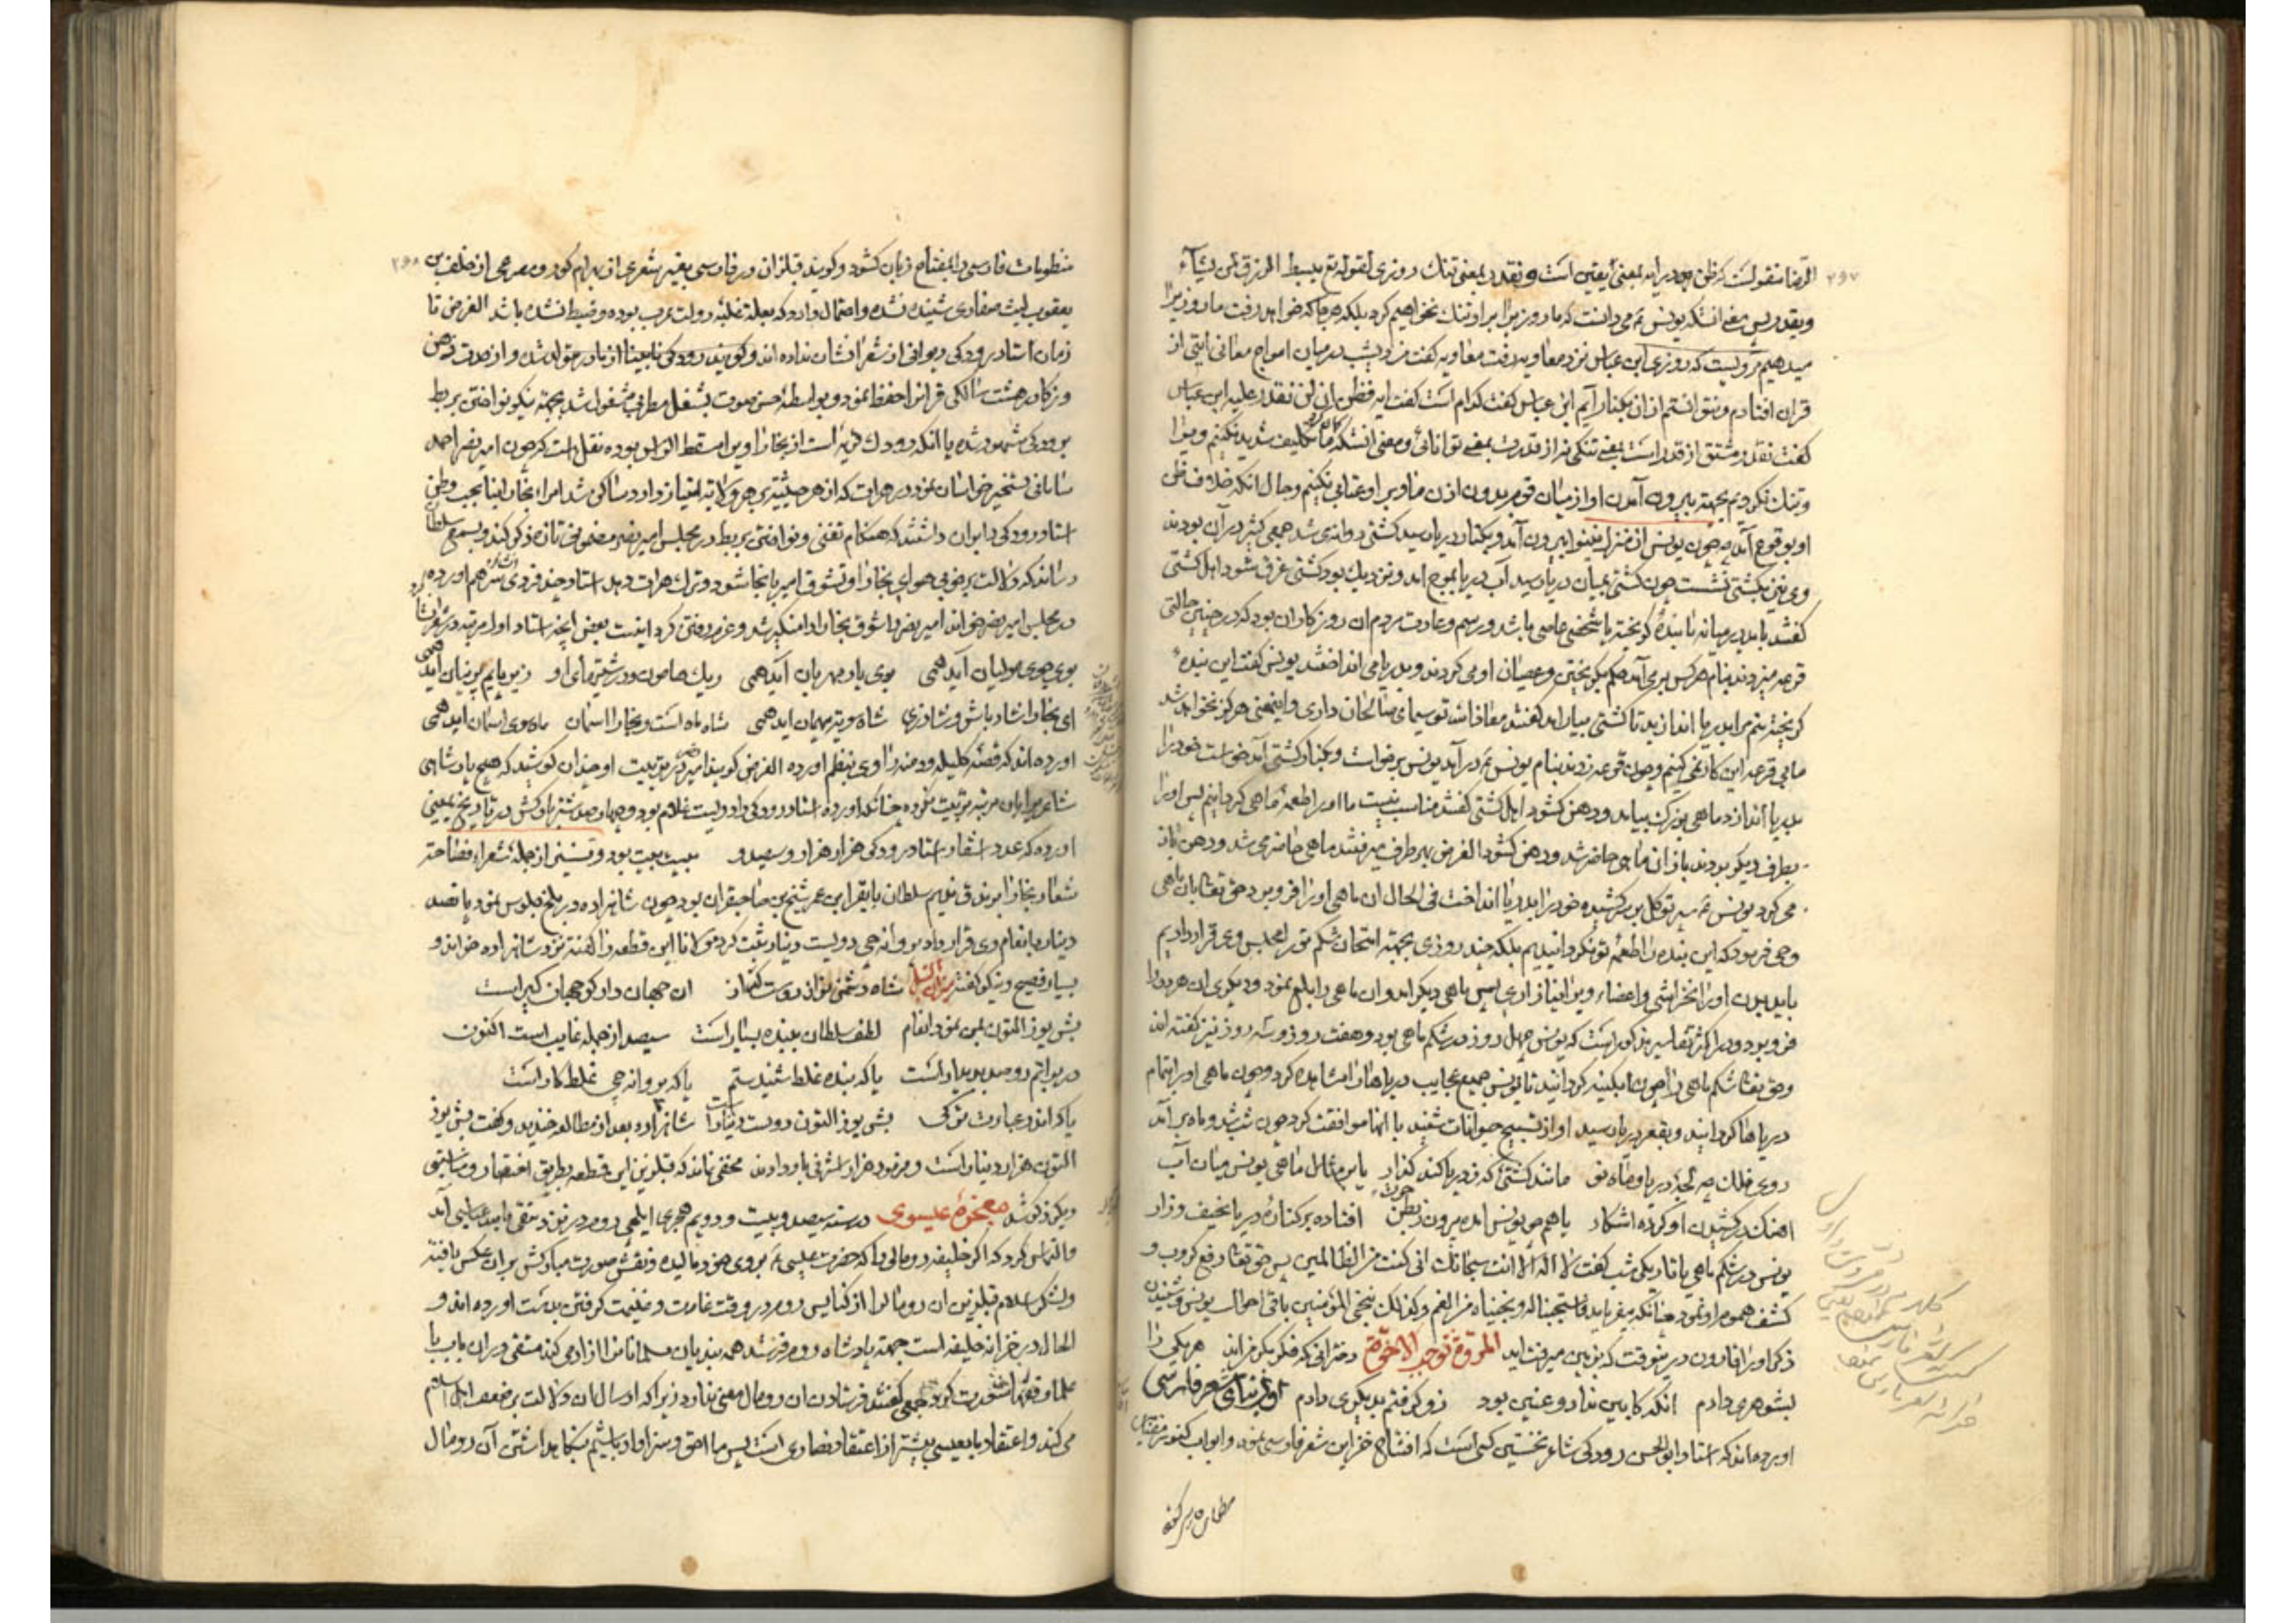 الرضا منقولست که ظن در این ایه بمعنی یقین است و نقدر بمعنی تنک روزی لقوله تع یبسط الرزق لمن یشاء
و یقدر پس معنی انستکه یونس ع می دانست که ما روزی برا براو تنک نخواهیم کرد بلکه هرجا که خواهد رفت ما روزی اورا
میدهیم مرویست که روزی ابن عباس نزد معاویه رفت معاویه کفت من دیشب در میان امواج معانی ایتی از
قران افتادم و نتوانستم از ان بکنار آیم ابن عباس کفت کدام است کفت ایه فظن ان لن نقدر علیه ابن عباس
کفت نقدر مشتق از قدر است بمعنی تنکی نه از قدرت بمعنی توانائی و معنی انستکه ما کار تکلیف شدید نکنیم و بر او
و تنک نکردیم بجهته بیرون آمدن او از میان قوم بدون اذن ما و بر او عتابی نکنیم و حال انکه خلاف ظن
او بوقوع آمد چون یونس از منزل نینوا بیرون آمد و بکنار دریا رسید کشتی روانه می شد جمعی کثیر در آن بودند
وی نیز بکشتی نشست چون کشتی بمیان دریا رسید آب دریا بموج امد و نزدیک بود کشتی غرق شود اهل کشتی
کفتند باید در میانه ما بنده کریخته یا شخصی عاصی باشد و رسم و عادت مردم ان روزکاران بود که در چنین حالتی
قرعه میزدند بنام هرکس برمی آمد حکم بکریختن و عصیان او می کردند و بدریا می انداختند یونس کفت این بنده
کریخته منم مرا بدریا اندازید تا کشتی بمیان اید کفتند معاذالله تو سیمای صالحان داری و این معنی هرکز نخواهد شد
ما بی قرعه این کار نمی کنیم و چون قرعه زدند بنام یونس ع در آمد یونس برخواست و بکنار کشتی آمد خواست خود را
بدریا اندازد ماهی بزرک بیامد و دهن کشود اهل کشتی کفتند مناسب نیست ما اورا طعمه ماهی کردانیم پس اورا
بطرف دیکر بردند باز ان ماهی حاضر شد و دهن کشود الغرض بهر طرف میرفتند ماهی حاضر می شد و دهن باز
می کرد یونس ع سپر توکل بر سر کشیده خود را بدریا انداخت فی الحال ان ماهی اورا فرو برد حق تعالی بان ماهی
وحی فرمود که این بنده را طعمه تو نکردانیدیم بلکه چند روزی بجهته امتحان شکم تو را مجلس وی قرار دادیم
باید بدن اورا نخراشی و اعضاء ویرا نیازاری پس ماهی دیکر امد و ان ماهی را ابلع نمود و دیکری ان هردو را
فرو برد و در اکثر تفاسیر مذکور است که یونس چهل روز در شکم ماهی بود و هفت روز و سه روز نیز کفته اند
و حق تعالی شکم ماهی را چون ابکینه کردانید تا یونس جمیع عجایب دریاها را مشاهده کرد و چون ماهی اورا تمام
دریاها کردانید و بقعر دریا رسید اواز تسبیح حیوانات شنید با انها موافقت کرد چون شب شد و ماه بر آمد
روی فلک چو لجه دریا و ماه نو مانند کشتی که ز دریا کند کذار یا بر مثال ماهی یونس میان آب
اهنک در کشیدن او کرده اشکار یا همچو یونس امده بیرون ز بطن حوت افتاده بر کناره دریا نحیف و زار
یونس در شکم ماهی با تاریکی شب کفت لا اله الا انت سبحانک انی کنت من الظالمین پس حق تعالی رفع کروب و
کشف هموم او نمود چنانکه میفرماید فاستجبنا له و نجیناه من الغم و کذلک ننجی المؤمنین باقی احوال یونس و شنیدن
ذکر او را قارون در ینوقت که بزمین میرفت اید المروة توجب الاخوة دخترانی که فکر بکر من اند هر یکی را
بشوهری دادم انکه کابین نداد و عنین بود زو کرفتم بدیکری دادم اول بنای شعر فارسی
اورده اند که استاد ابوالحسن رودکی شاعر نخستین کسی است که افتتاح خزاین شعر فارسی نمود و ابواب کنوز
۲۶۷
منظومات فارسی را بمفتاح زبان کشود و کویند قبل از ان در فارسی بغیر شعری از بهرام کور و مصرعی از خلف بن
یعقوب لیث صفاری شنیده نشده و احتمال دارد که بعلة غلبه دولت عرب بوده و ضبط نشده باشد الغرض تا
زمان استاد رودکی دیوانی از شعرا نشان نداده اند و کویند رودکی نابینا از مادر متولد شد و از حدت ذهن
و زکا در هشت سالکی قرانرا حفظ نمود و بواسطه حسن صوت بشغل مطربی مشغول شد بجهته نیکو نواختن بربط
برودکی مشهور شده یا انکه رودک قریه است از بخارا و یرا مسقط الراس بوده نقل است که چون امیر نصر احمد
سامانی تسخیر خراسان نمود در هرات که از هر حیثیتی بر هر ولایه امتیاز دارد ساکن شد امراء بخارا بنا بحب وطن
استاد رودکی را بران داشتند که هنکام تغنی و نواختن بربط در مجلس امیر نصر مضمونی تازه ذکر کند و بسمع سلطان
رساند که دلالت بر خوبی هوای بخارا و تشوق امیر بانجا شود و ترک هرات دهد استاد چند فردی انشاد هم اورده
در مجلس امیر نصر خواند امیر نصر را شوق بخارا دامنکیر شد و عزم رفتن کرد اینست بعضی از انچه استاد اول مرتبه در شعر
بوی جوی مولیان آید همی بوی یار مهربان آید همی ریک هامون و درشتیهای او زیر پایم پرنیان آید همی
ای بخارا شاد باش و شاد زی شاه سویت میهمان اید همی شاه ماه است و بخارا اسمان ماه سوی اسمان اید همی
اورده اند که قصه کلیله و دمنه را وی بنظم اورده الغرض کویند امیر نصر در تربیت او چندان کوشید که هیچ پادشاهی
شاعریرا بان مرتبه تربیت ننموده چنانکه اورده استاد رودکی را دویست غلام بود و چهارصد شتر بارکش در تاریخ یمینی
اورده که عدد اشعار استاد رودکی هزار هزار و سیصد و بیست بیت بود و نیز از جمله شعراء فصاحت
شعار بخارا برندق ندیم سلطان بایقرا ابن عمر شیخ بن صاحبقران بود چون شاهزاده در بلخ جلوس نمود پانصد
دینار بانعام وی قرار داد پروانه چی دویست دینار ثبت کرد مولانا این قطعه را کفته نزد شاهزاده خواند و
بسیار فصیح و نیکو کفته شاه دشمن نواز دوست کداز ان جهان دار کو جهان کیر است
بش یوز التون بمن نمود انعام لطف سلطان به بنده بسیار است سیصد از جمله غایب است اکنون
در براتم دو صد پدیدار است یا که بنده غلط شنیدستم یا که پروانه چی غلط کار است
یا که اندر عبارت ترکی بش یوز التون دویست دینار است شاهزاده بعد از مطالعه خندید و کفت بش یوز
التون هزار دینار است و فرمود هزار اشرفی باو دادند مخفی نماند که قبل ازین این قطعه بطریق اختصار و مناسبتی
دیکر ذکر شد معجزه عیسوی در سنه سیصد و بیست و دویم هجری ایلچی روم در نزد متقی بالله عباسی آمد
و التماس کرد که اکر خلیفه رومالی را که حضرت عیسی ع بروی خود مالیده و نقش صورت مبارکش بران عکس یافته
و لشکر اسلام قبل ازین ان رومالرا از کنایس روم در وقت غارت و غنیمت کرفتن بدست اورده اند و
الحال در خزانه خلیفه است جهته پادشاه روم فرستد همه بندیان مسلمانان را ازاد می کند متقی در ان باب با
علما و فقها مشورت کرد جمعی کفتند فرستادن ان رومال معنی ندارد زیرا که ارسال ان دلالت بر ضعف اهل اسلام
می کند و اعتقاد ما بعیسی بیشتر از اعتقاد نصاری است پس ما احق و سزاوار باشیم بنکاه داشتن آن رومال